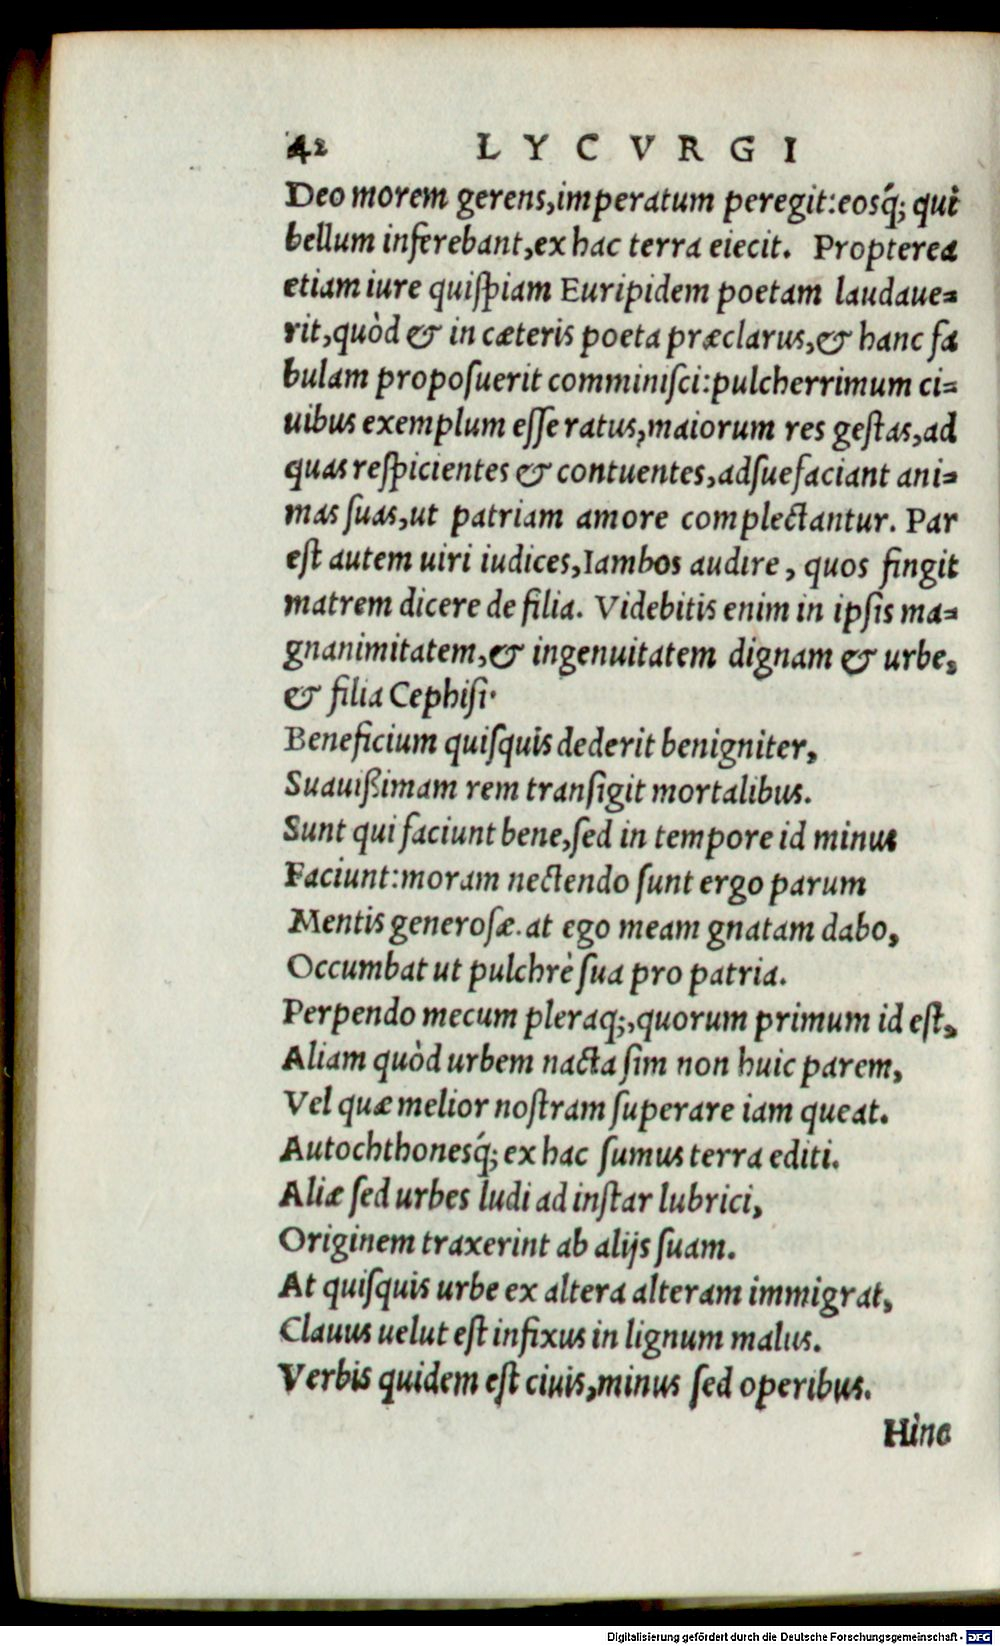 42 LYCVRGI
Deo morem gerens,imperatum peregit:eosq́; qui
bellum inferebant,ex hac terra eiecit. Propterea
etiam iure quiſpiam Euripidem poetam laudaue=
rit,quòd & in cæteris poeta præclarus,& hanc fa
bulam propoſuerit comminiſci:pulcherrimum ci=
uibus exemplum eſſe ratus,maiorum res geſtas,ad
quas reſpicientes & contuentes,adſuefaciant ani=
mas ſuas,ut patriam amore complectantur. Par
eſt autem uiri iudices,Iambos audire, quos fingit
matrem dicere de filia. Videbitis enim in ipſis ma=
gnanimitatem,& ingenuitatem dignam & urbe,
& filia Cephiſi.
Beneficium quiſquis dederit benigniter,
Suauißimam rem tranſigit mortalibus.
Sunt qui faciunt bene,ſed in tempore id minus
Faciunt:moram nectendo ſunt ergo parum
Mentis generoſæ.at ego meam gnatam dabo,
Occumbat ut pulchrè ſua pro patria.
Perpendo mecum pleraq;,quorum primum id eſt,
Aliam quòd urbem nacta ſim non huic parem,
Vel quæ melior noſtram ſuperare iam queat.
Autochthonesq́; ex hac ſumus terra editi.
Aliæ ſed urbes ludi ad inſtar lubrici,
Originem traxerint ab alijs ſuam.
At quiſquis urbe ex altera alteram immigrat,
Clauus uelut eſt infixus in lignum malus.
Verbis quidem eſt ciuis,minus ſed operibus.
Hinc
Digitalisierung gefördert durch die Deutsche Forschungsgemeinschaft - DFG